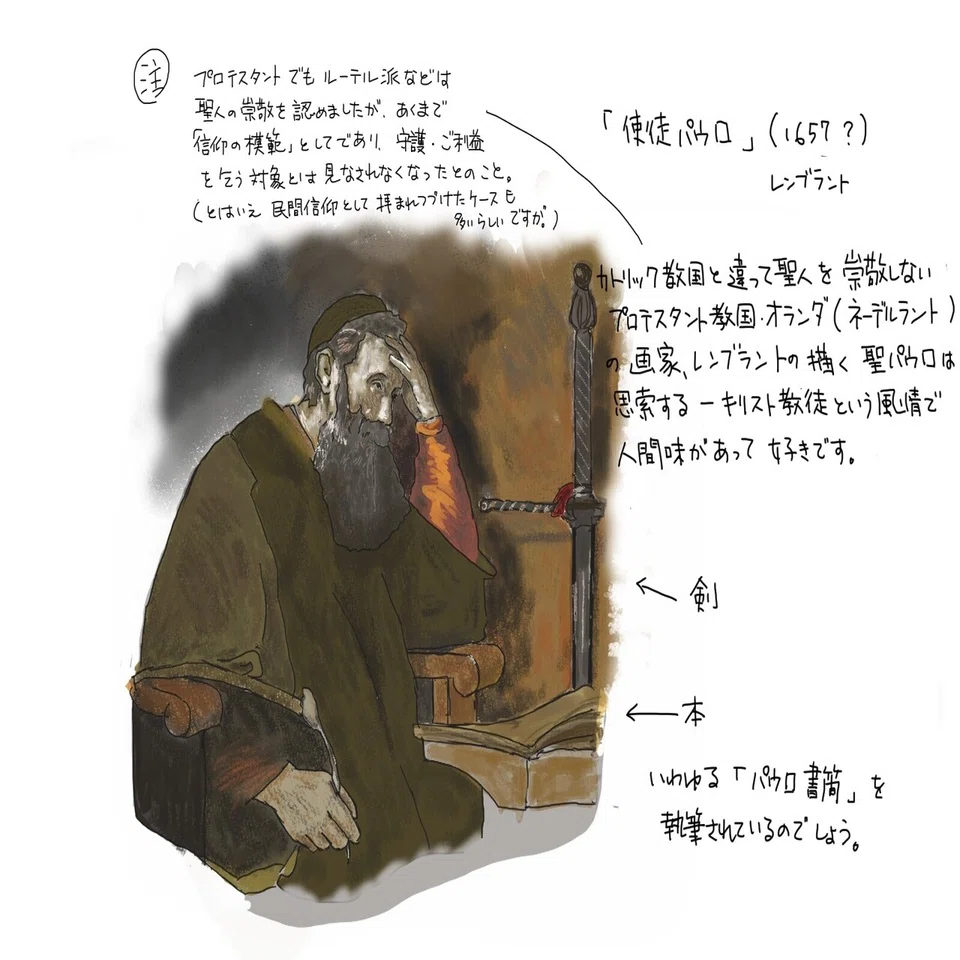 注
プロテスタントでもルーテル派などは
聖人の崇敬を認めましたが、あくまで
「信仰の模範」としてであり、守護・ご利益
を乞う対象とは見なされなくなったとのこと。
(とはいえ民間信仰として拝まれつづけたケースも
多いらしいですが。)
「使徒パウロ」(1657?)
レンブラント
カトリック教国と違って聖人を崇敬しない
プロテスタント教国・オランダ(ネーデルラント)
の画家、レンブラントの描く聖パウロは
思索する一キリスト教徒という風情で
人間味があって好きです。
←剣
←本
いわゆる「パウロ書簡」を
執筆されているのでしょう。